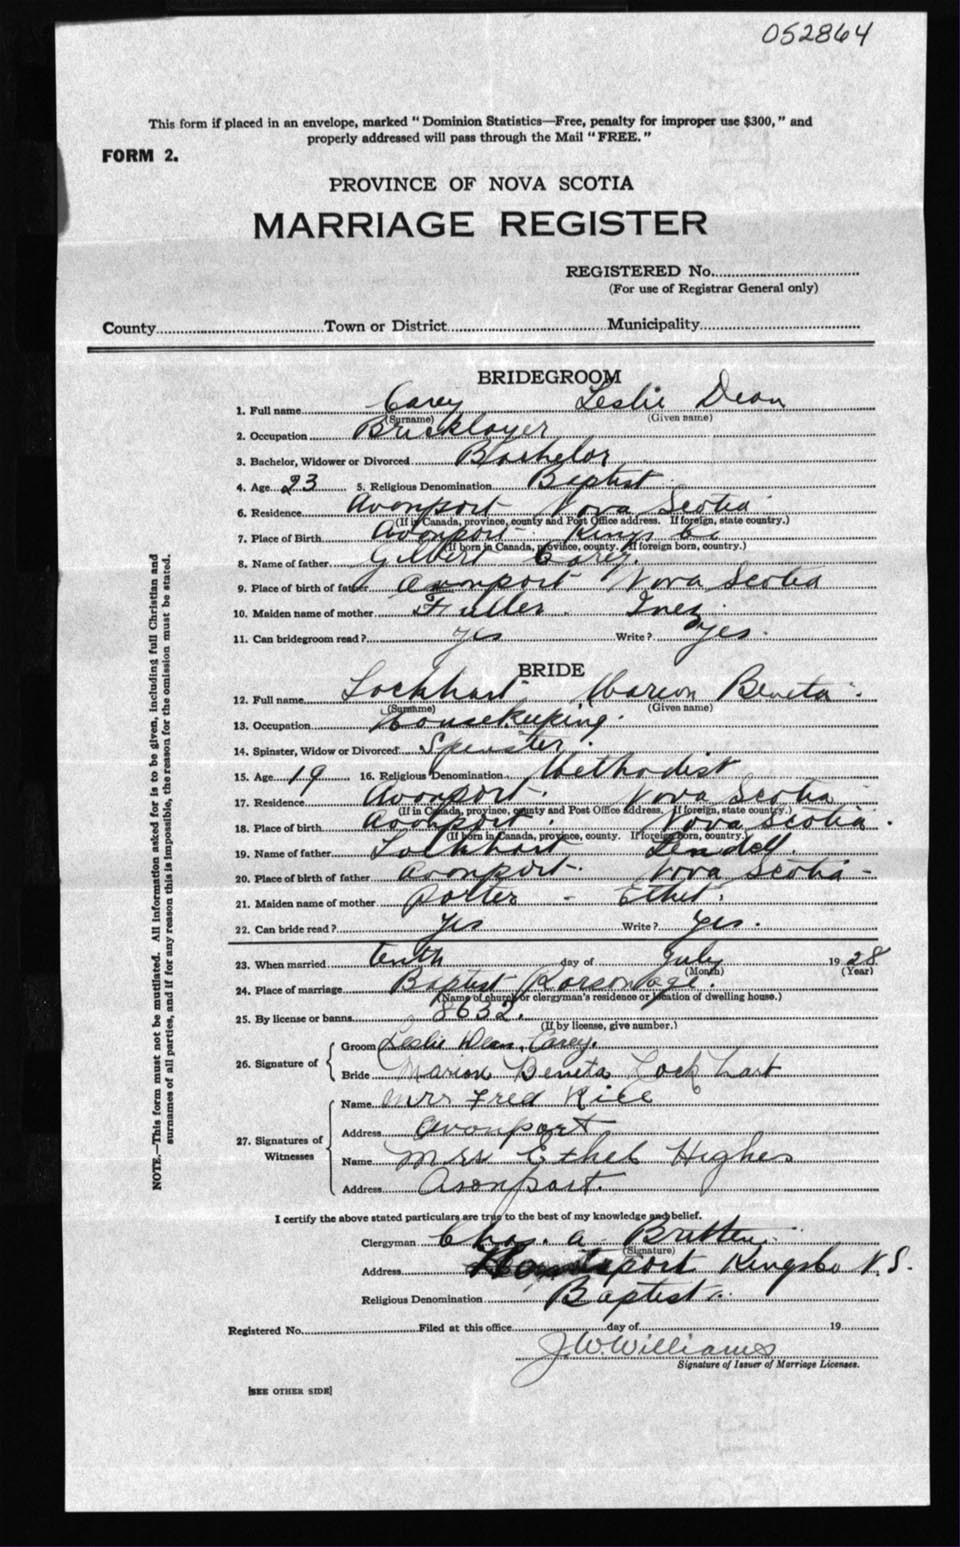 052864
This form if placed in an envelope, marked "Dominion Statistics—Free, penalty for improper use $300," and
properly addressed will pass through the Mail "FREE."
FORM 2.
PROVINCE OF NOVA SCOTIA
MARRIAGE REGISTER
REGISTERED No.
(For use of Registrar General only)
County Town or District Municipality
BRIDEGROOM
1. Full name Carey Leslie Dean
(Surname) (Given name)
2. Occupation Bricklayer
3. Bachelor, Widower or Divorced Bachelor
4. Age 23 5. Religious Denomination Baptist
6. Residence Avonport Nova Scotia
(If in Canada, province, county and Post Office address. If foreign, state country.)
7. Place of Birth Avonport Kings Co
(If born in Canada, province, county. If foreign born, country.)
8. Name of father Gilbert Carey.
9. Place of birth of father Avonport Nova Scotia
10. Maiden name of mother Fuller. Inez.
11. Can bridegroom read? yes Write? yes.
BRIDE
12. Full name Lockhart Marion Beneta
(Surname) (Given name)
13. Occupation Housekeeping.
14. Spinster, Widow or Divorced Spinster.
15. Age 19 16. Religious Denomination Methodist
17. Residence Avonport. Nova Scotia
(If in Canada, province, county and Post Office address. If foreign, state country.)
18. Place of birth Avonport. Nova Scotia.
(If born in Canada, province, county. If foreign born, country.)
19. Name of father Lockhart Lendell.
20. Place of birth of father Avonport. Nova Scotia -
21. Maiden name of mother Porter - Ethel.
22. Can bride read? yes Write? yes.
23. When married tenth day of July 1928
(Month) (Year)
24. Place of marriage Baptist Parsonage.
(Name of church or clergyman's residence or location of dwelling house.)
25. By license or banns 8632.
(If by license, give number.)
26. Signature of Groom Leslie Dean, Carey.
Bride Marion Beneta Lockhart
27. Signatures of Witnesses Name Mrs Fred Rice
Address Avonport
Name Mrs Ethel Highes
Address Avonport.
I certify the above stated particulars are true to the best of my knowledge and belief.
Clergyman Chas. A. Britten
(Signature)
Address Hantsport Kings Co N.S.
Religious Denomination Baptist
Registered No. Filed at this office day of 19
J.W. Williams
Signature of Issuer of Marriage Licenses.
[SEE OTHER SIDE]
NOTE.—This form must not be mutilated. All information asked for is to be given, including full Christian and
surnames of all parties, and if for any reason this is impossible, the reason for the omission must be stated.